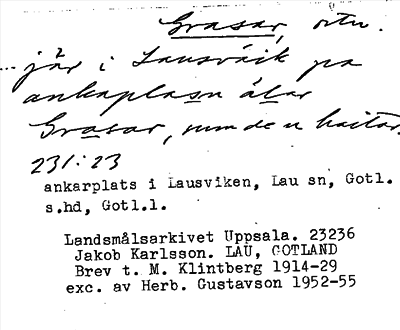 Grasar, ortn.
... jär i Lausvåik pa
ankaplasn älar
Grasar, sum de u haitar.
231:23
ankarplats i Lausviken, Lau sn, Gotl.
s.hd, Gotl.l.
Landsmålsarkivet Uppsala. 23236
Jakob Karlsson. LAU, GOTLAND
Brev t. M. Klintberg 1914-29
exc. av Herb. Gustavson 1952-55